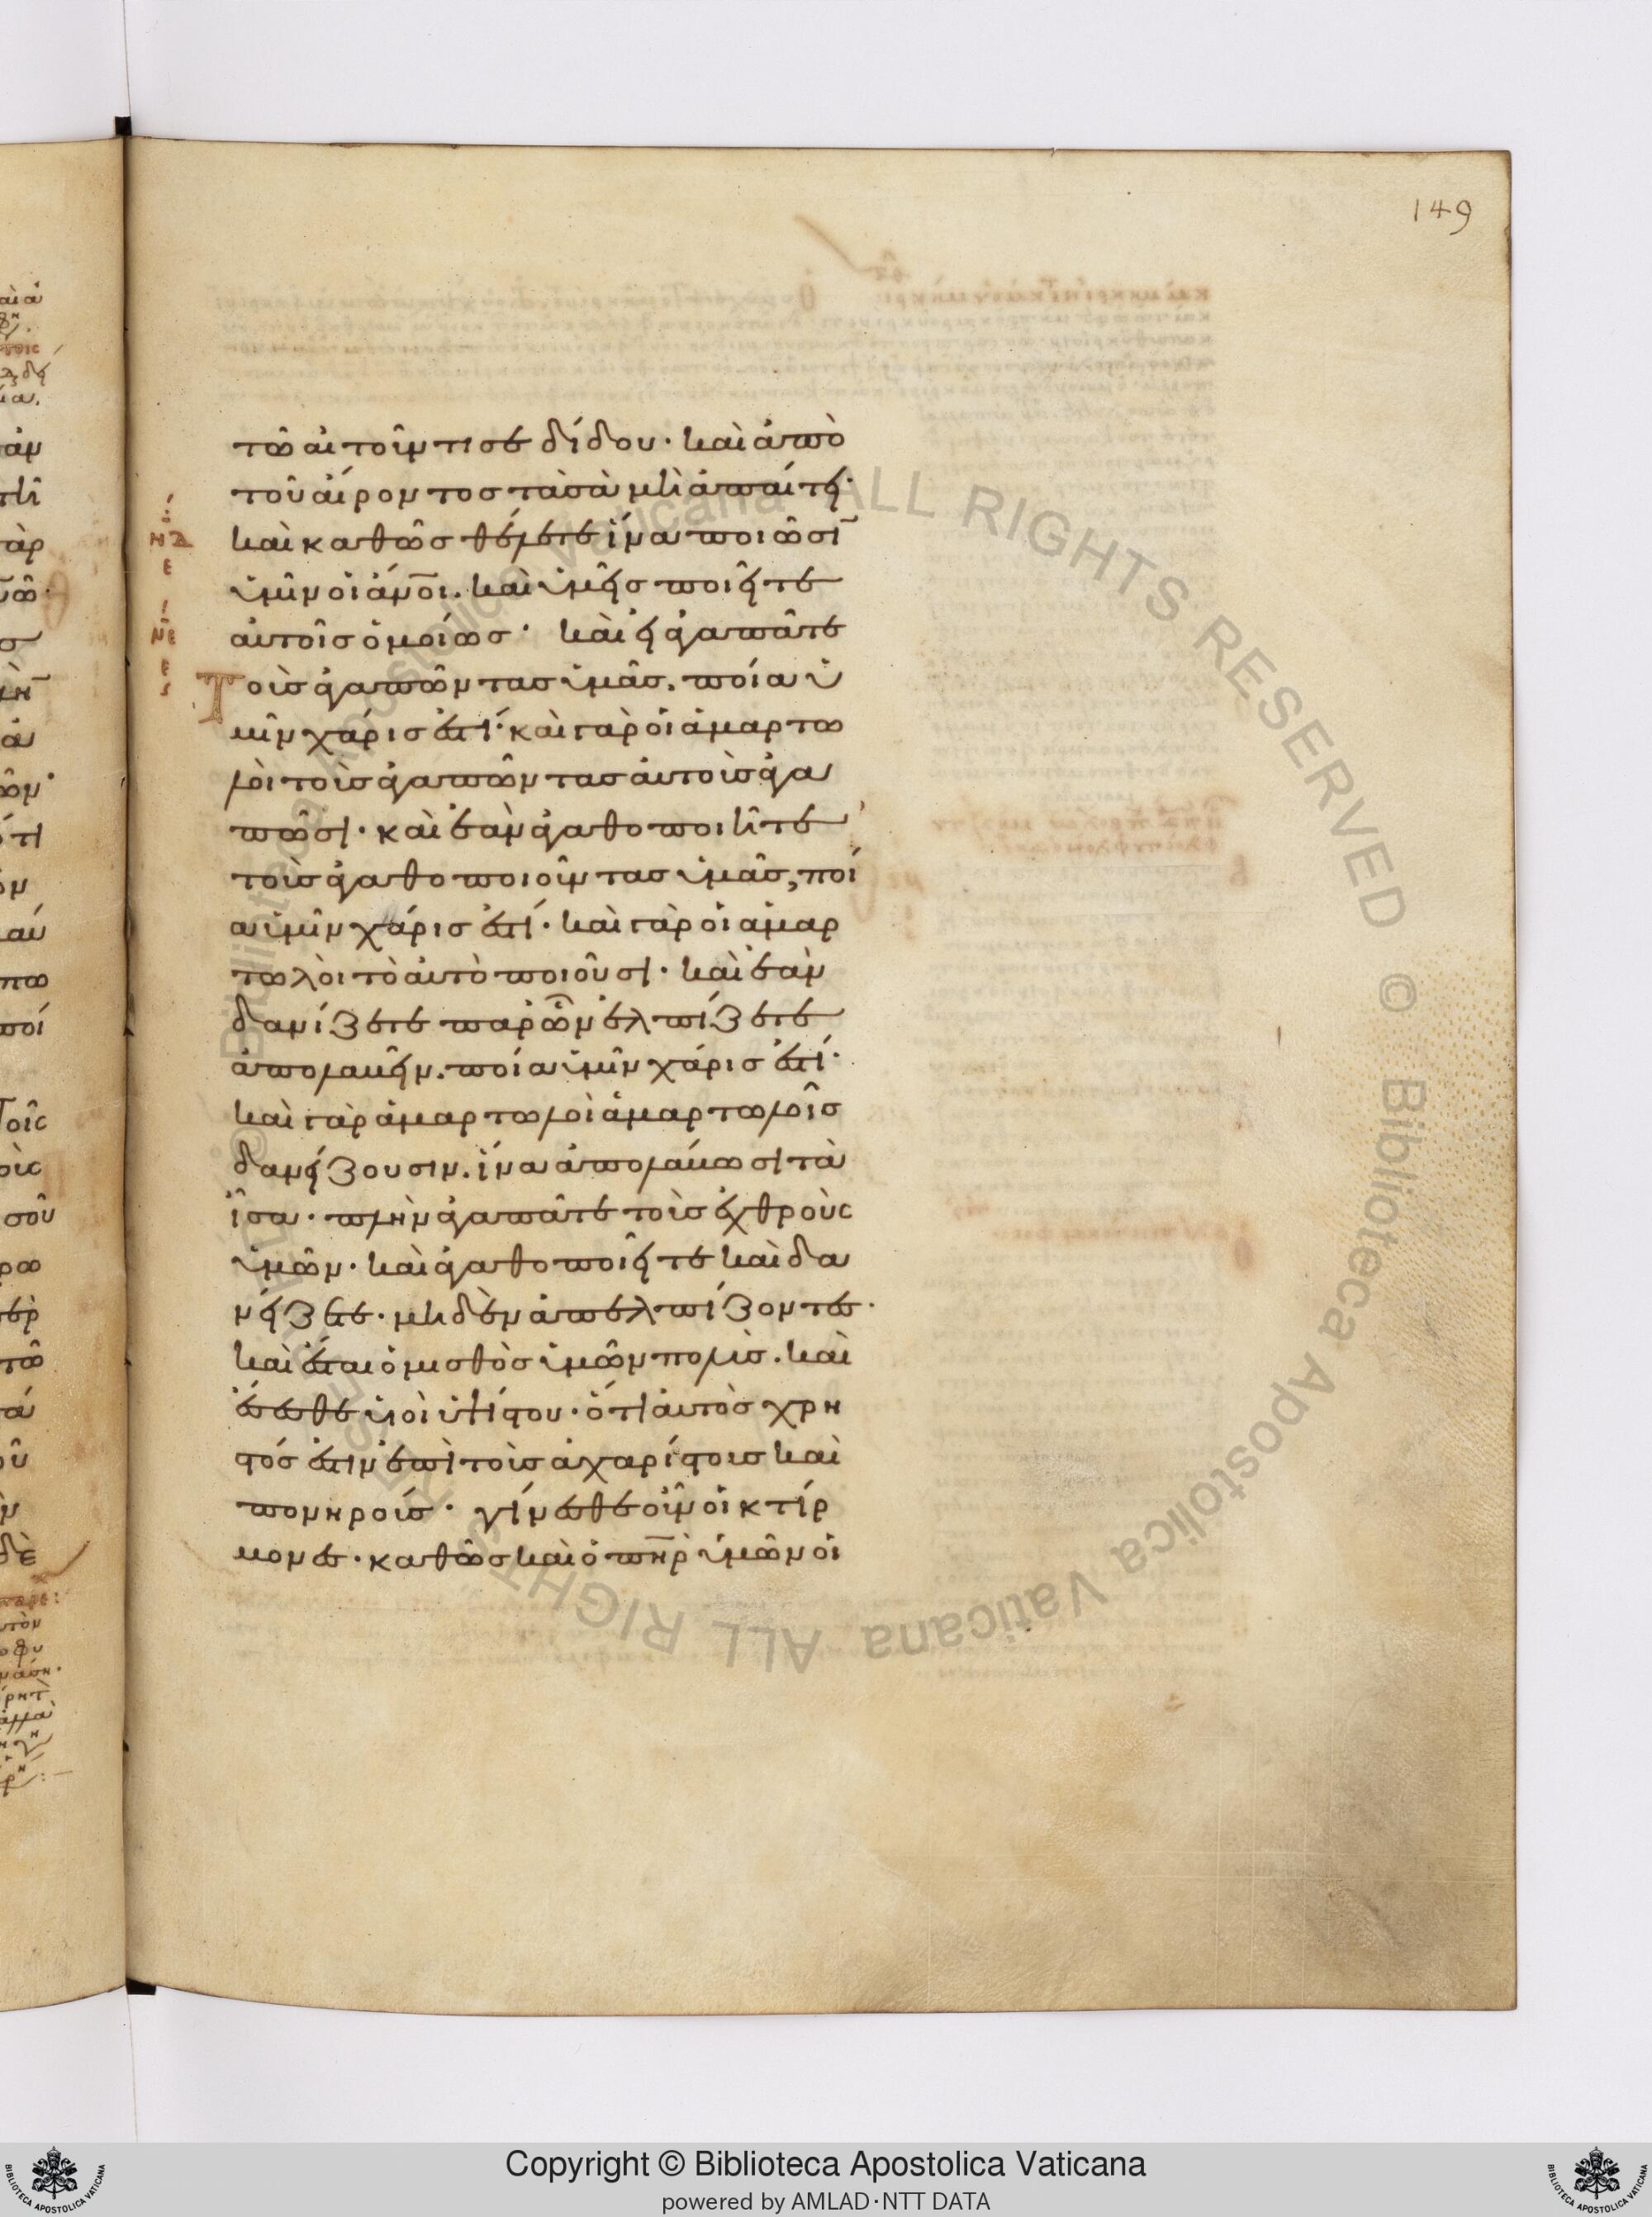 149
τῶ αἰτοῦντί σε δίδου· καὶ ἀπὸ
τοῦ αἴροντος τὰ σὰ μὴ ἀπαίτει·
καὶ καθὼς θέλετε ἵνα ποιῶσῑ
ὑμῖν οἱ ἄν̅οι. καὶ ὑμεῖς ποιεῖτε
αὐτοῖς ὁμοίως· καὶ εἰ ἀγαπᾶτε
Τοὺς ἀγαπῶντας ὑμᾶς. ποία ὑ
μῖν χάρις ἐστί· καὶ γὰρ οἱ ἁμαρτω
λοὶ τοὺς ἀγαπῶντας αὐτοὺς ἀγα
πῶσι· καὶ ἐὰν ἀγαθοποιῆτε
τοὺς ἀγαθοποιοῦντας ὑμᾶς, ποί
α ὑμῖν χάρις ἐστί· καὶ γὰρ οἱ ἁμαρ
τωλοὶ τὸ αὐτὸ ποιοῦσι· καὶ ἐὰν
δανίζετε παρ' ὧν ἐλπίζετε
ἀπολαβεῖν. ποία ὑμῖν χάρις ἐστί·
καὶ γὰρ ἁμαρτωλοὶ ἁμαρτωλοῖς
δανείζουσιν. ἵνα ἀπολάβωσι τὰ
ἶσα· πλὴν ἀγαπᾶτε τοὺς ἐχθροὺς
ὑμῶν· καὶ ἀγαθοποιεῖτε καὶ δα
νείζετε· μηδὲν ἀπελπίζοντες·
καὶ ἔσται ὁ μισθὸς ὑμῶν πολύς. καὶ
ἔσεσθε υἱοὶ ὑψίστου· ὅτι αὐτὸς χρη
στός ἐστιν ἐπὶ τοὺς ἀχαρίστους καὶ
πονηρούς· γίνεσθε οὖν οἰκτίρ
μονες· καθὼς καὶ ὁ π̅η̅ρ ὑμῶν οἰ
ΝΔ
Ε
ΝΕ
Ε
© Biblioteca Apostolica Vaticana ALL RIGHTS RESERVED © Biblioteca Apostolica Vaticana ALL RIGHTS RESERVED
Copyright © Biblioteca Apostolica Vaticana
powered by AMLAD·NTT DATA
BIBLIOTECA APOSTOLICA VATICANA
BIBLIOTECA APOSTOLICA VATICANA